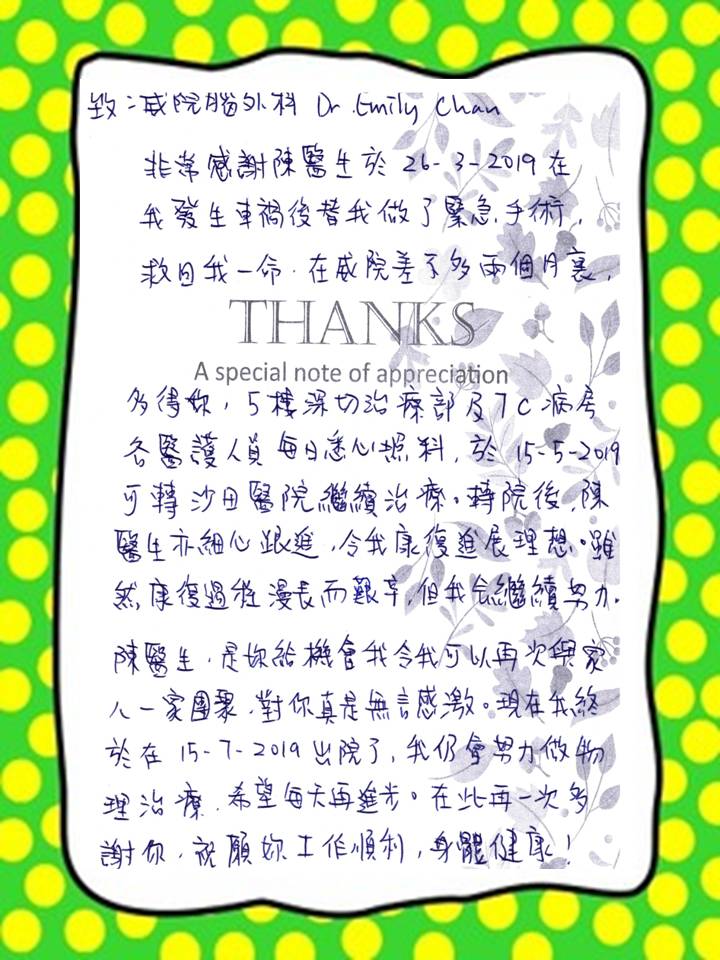 致：威院腦外科 Dr. Emily Chan
非常感謝陳醫生於 26-3-2019 在
我發生車禍後替我做了緊急手術，
救回我一命．在威院差不多兩個月裏，
THANKS
A special note of appreciation
多得妳，5樓深切治療部及7C病房
各醫護人員每日悉心照料，於 15-5-2019
可轉沙田醫院繼續治療。轉院後，陳
醫生亦細心跟進，令我康復進展理想。雖
然康復過程漫長而艱辛，但我会繼續努力．
陳醫生，是妳給機會我令我可以再次與家
人一家團聚，對你真是無言感激。現在我終
於在 15-7-2019 出院了，我仍會努力做物
理治療，希望每天再進步。在此再一次多
謝你，祝願妳工作順利，身體健康！